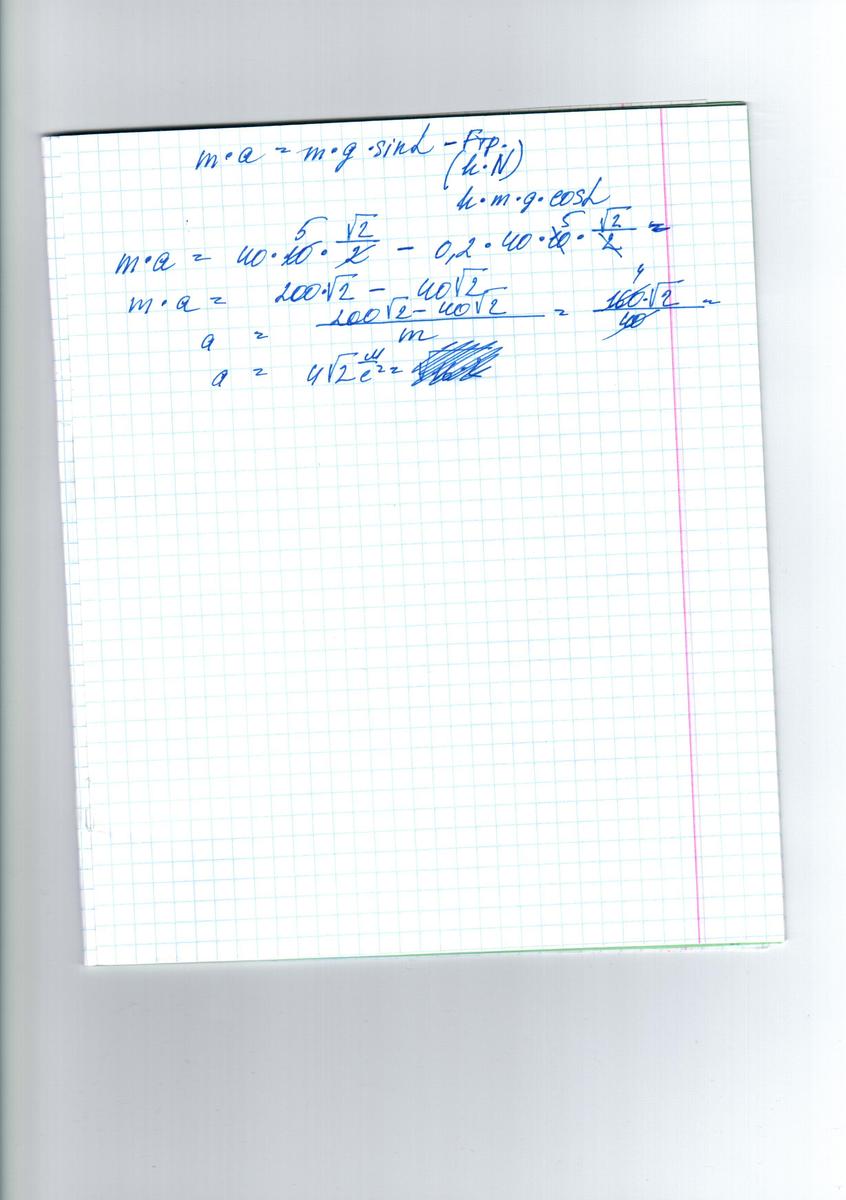 m·a = m·g·sinα - Fтр.
(k·N)
k·m·g·cosα
m·a = 40·10·√2/2 - 0,2·40·10·√2/2 =
5 5
m·a = 200·√2 - 40√2
a = (200√2 - 40√2)/m = 160·√2/40 =
4
a = 4√2 м/с² =